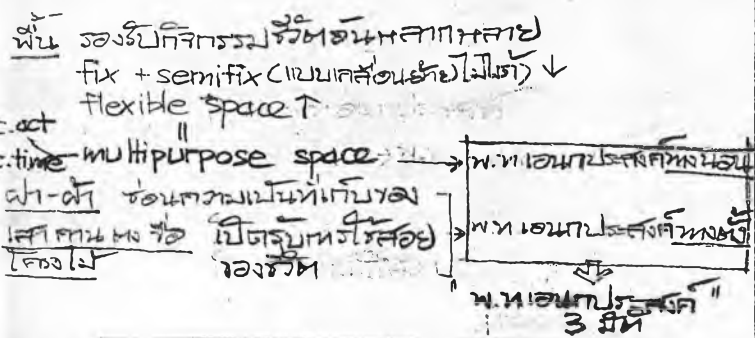 พื้น รองรับกิจกรรมชีวิตอันหลากหลาย
fix + semifix (แบบเคลื่อนย้าย) ↓
flexible space ↑
c.act
c.time multipurpose space → พ.ท. เอนกประสงค์ทางนอน
ฝา-ฝ้า ซ่อนความเป็นที่เก็บของ
เสา คาน ตง ขื่อ เปิดรับการใช้สอย → พ.ท เอนกประสงค์ทางตั้ง
โครงไม้ ของชีวิต
"พ.ท เอนกประสงค์"
3 มิติ